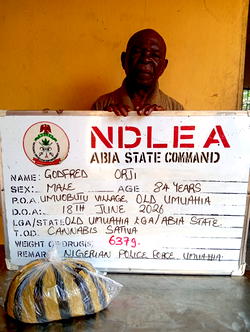 NDLEA
ABIA STATE COMMAND
NAME: GODFRED ORJI
SEX: MALE AGE 84 YEARS
P.O.A. UMUOBUTU VILLAGE, OLD UMUAHIA
D.O.A: 18TH JUNE 2026
LGA/STATE OLD UMUAHIA LGA/ABIA STATE
T.O.D: CANNABIS SATIVA
WEIGHT OF DRUGS: 637g.
REMAR NIGERIAN POLICE FORCE UMUAHIA